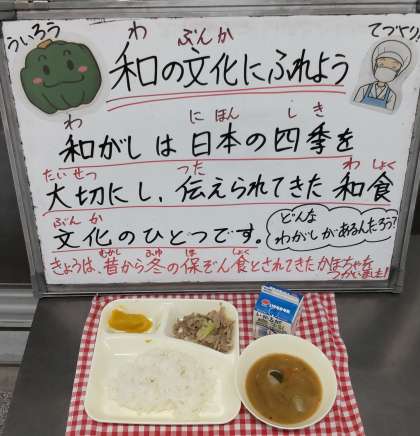 ういろう
てづくり!
わ ぶんか
和の文化にふれよう
わ にほん しき
和がしは日本の四季を
たいせつ つた わ しょく
大切にし、伝えられてきた和食
ぶんか
文化のひとつです。
どんな
わがしがあるんだろう?
むかし ふゆ ほ しょく
きょうは、昔から冬の保ぞん食とされてきたかぼちゃを
つかいました!